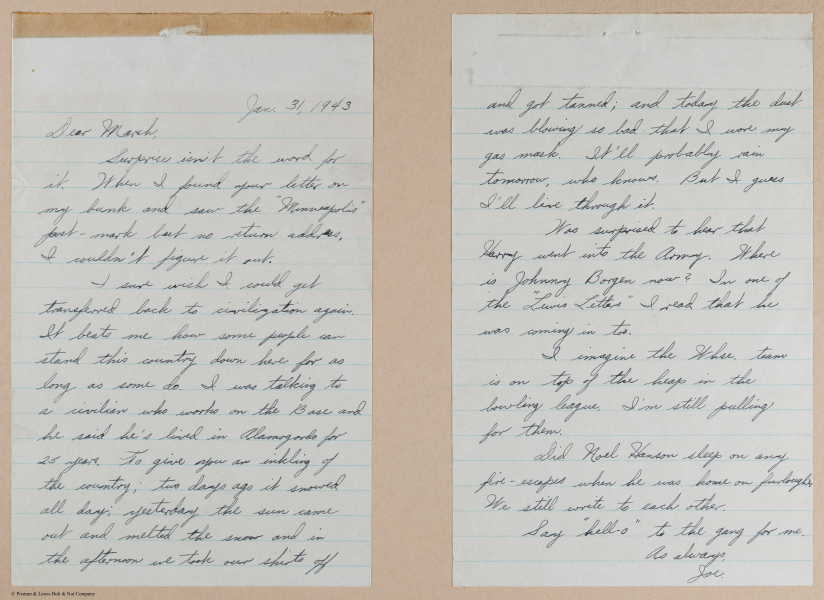 Jan. 31, 1943
Dear Marsh,
Surprise isn't the word for
it. When I found your letter on
my bunk and saw the "Minneapolis"
post-mark but no return address,
I couldn't figure it out.
I sure wish I could get
transferred back to civilization again.
It beats me how some people can
stand this country down here for as
long as some do. I was talking to
a civilian who works on the Base and
he said he's lived in Alamogordo for
25 years. To give you an inkling of
the country; two days ago it snowed
all day; yesterday the sun came
out and melted the snow and in
the afternoon we took our shirts off
and got tanned; and today the dust
was blowing so bad that I wore my
gas mask. It'll probably rain
tomorrow, who knows. But I guess
I'll live through it.
Was surprised to hear that
Harry went into the Army. Where
is Johnny Borgen now? In one of
the "Lewis Letters" I read that he
was coming in too.
I imagine the Whse. team
is on top of the heap in the
bowling league. I'm still pulling
for them.
Did Noel Hanson sleep on any
fire-escapes when he was home on furlough?
We still write to each other.
Say "hell-o" to the gang for me.
As always,
Joe.
© Preium & Lewis Bolt & Nut Company